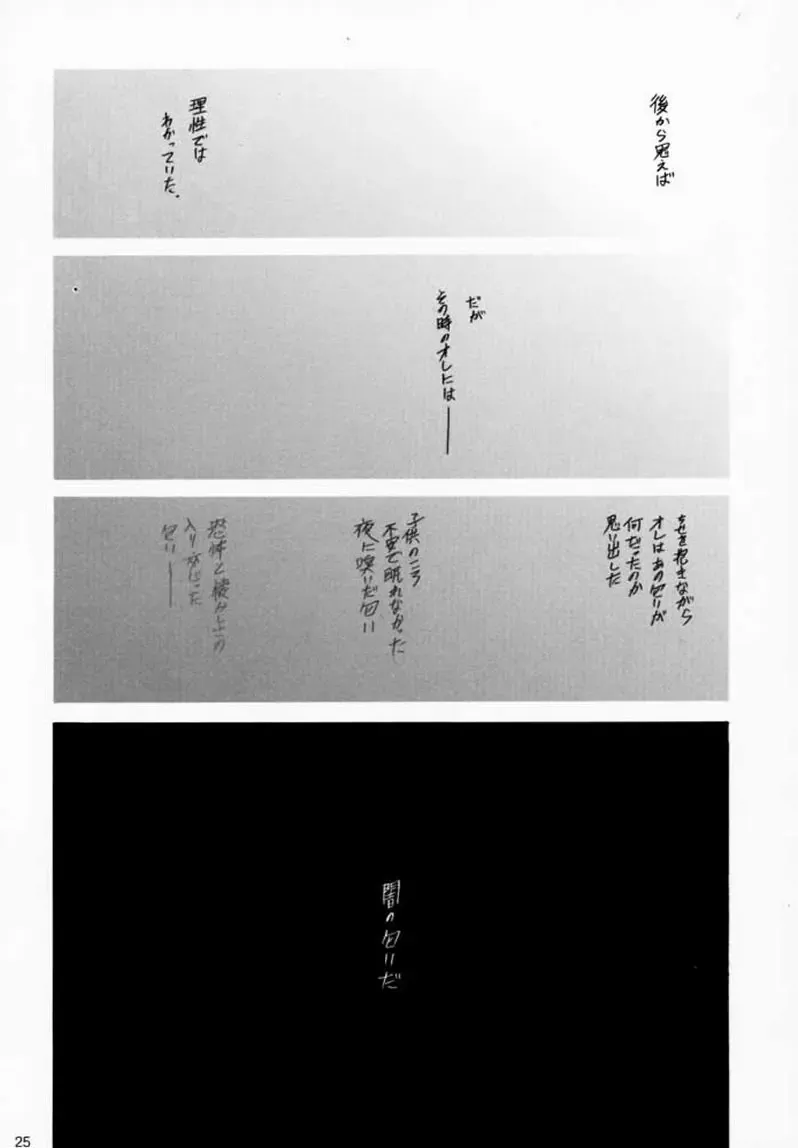 後から思えば
理性では
わかっていた。
だが
その時のオレには——
を抱きながら
オレはあの匂いが
何だったのか
思い出した
子供のころ
不安で眠れなかった
夜に嗅いだ匂い
恐怖と
入り交じった
匂い——
闇の匂いだ
25